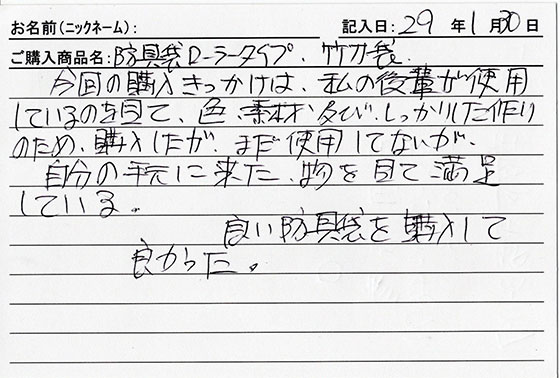 お名前(ニックネーム): 記入日: 29 年 1 月 30 日
ご購入商品名: 防具袋ローラータイプ. 竹刀袋.
今回の購入きっかけは、私の後輩が使用
しているのを目て、色、素材及び、しっかりした作り
のため、購入したが、まだ使用してないが、
自分の手元に来た、物を目て満足
している。
良い防具袋を購入して
良かった。